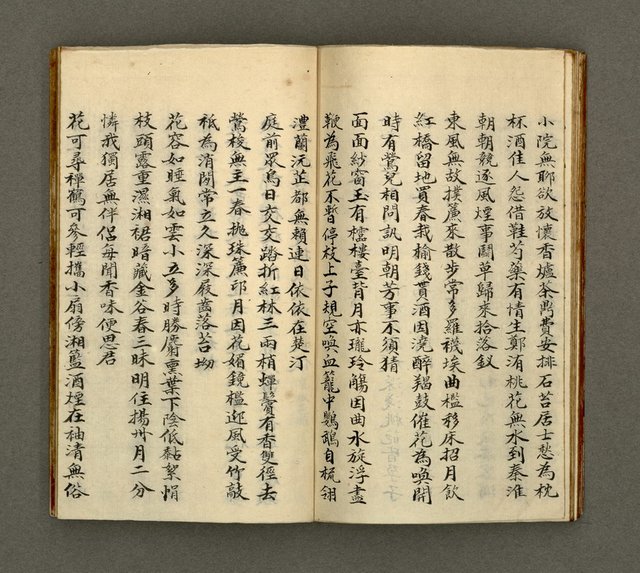 小院無聊欲放懷香爐茶鼎費安排石苔居士愁為枕
杯酒佳人怨借鞋芍藥有情生鄭洧桃花無水到秦淮
朝朝競逐風煙事鬪草歸來拾落釵
東風無故撲簾來散步常多羅襪埃曲檻移床招月飲
紅橋留地買春栽榆錢貰酒因澆醉羯鼓催花為喚開
時有鶯兒相問訊明朝芳事不須猜
面面紗窗玉有櫺樓臺背月亦瓏玲觴因曲水旋浮盡
鞭為飛花不暫停枝上子規空喚血籠中鸚鵡自梳翎
澧蘭沅芷都無賴連日依依在焚汀
庭前眾鳥日交交踏折紅林三兩梢蟬鬢有香雙徑去
鶯梭無主一春拋珠簾邛月因花媚鏡檻迎風受竹敲
秖為消閒常立久深深屐齒落苔坳
花容如睡氣如雲小立多時勝麝熏葉下陰低黏絮帽
枝頭露重濕湘裙暗藏金谷春三昧明住揚州月二分
憐我獨居無伴侶每聞香味便思君
花可尋禪鶴可參輕攜小扇傍湘籃酒煙在袖清無俗